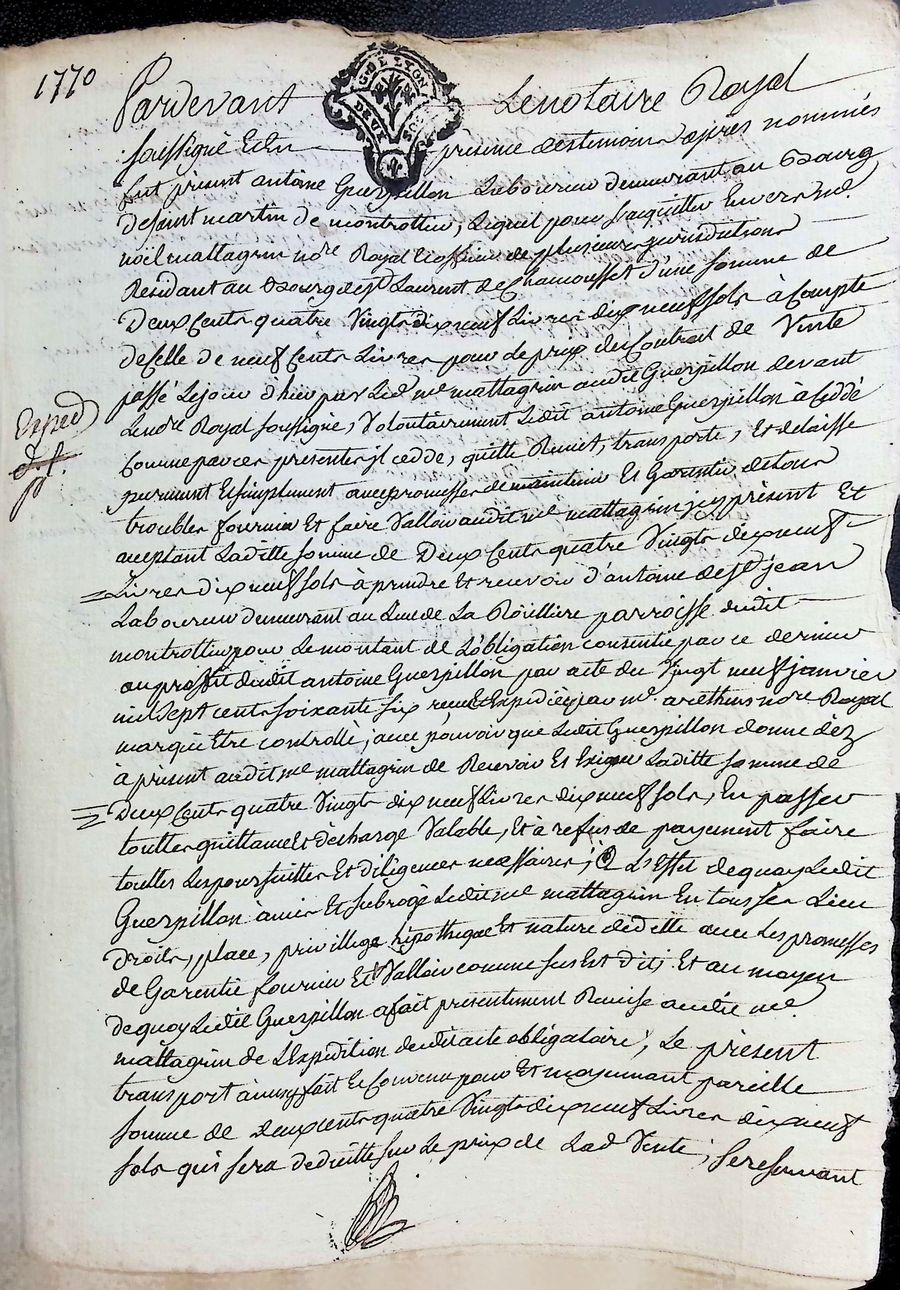 1770
Pardevant Le notaire Royal
G. DE LYON
DEUX SOLS
soussigné Et En présence des témoins après nommés
fut présent antoine Guerpillon Laboureur demeurant au Bourg
de saint martin de montrottier, Lequel pour s'acquitter Envers me.
noël mattagrin nore. Royal Et officier de plusieurs jurisdictions
Résidant au Bourg de st. Laurent de Chamousset d'une somme de
Deux Cents quatre Vingts dix neuf Livres dix neuf sols à Compte
de Celle de neuf Cents Livres pour Le prix du Contrat de Vente
passé Lejour d'hier par Led. me. mattagrin audit Guerpillon devant
Le nore. Royal soussigné, Volontairement Ledit antoine Guerpillon à Cèdé
Comme par ces presentes jl cedde, quitte Remet, transporte, Et delaisse
purement Et simplement avec promesses de maintenir Et Garentir de tous
troubles fournir Et faire Valloir audit me. mattagrin jcy présent Et
acceptant Laditte somme de Deux Cents quatre Vingts dix neuf
Livres dix neuf sols à prendre Et recevoir d'antoine de st. jean
Laboureur demeurant au Lieu de La Roulliere parroisse dudit
montrottier pour Le montant de L'obligation consentie par ce dernier
au proffit dudit antoine Guerpillon par acte du Vingt neuf janvier
mil sept cents soixante six reçu Et Expédiée par me. nore. Royal
marqué Etre controllé, avec pouvoir que Ledit Guerpillon donne dèz
à présent audit me. mattagrin de Recevoir Et Exiger Laditte somme de
Deux Cents quatre Vingts dix neuf Livres dix neuf sols, En passer
touttes quittances Et décharge Valable, Et à refus de payement faire
touttes Les poursuittes Et diligences nécessaires; à L'Effet de quoy Ledit
Guerpillon à mis Et subrogé Ledit me. mattagrin En tous ses Lieu
droits, place, privillege hipotheque Et nature d'icelle avec Les promesses
de Garentie fournir Et Valloir comme sus Est dit; Et au moyen
de quoy Ledit Guerpillon a fait presentement Remise audit me.
mattagrin de L'Expédition dudit acte obligatoire; Le présent
transport ainsy fait Et Convenu pour Et moyennant pareille
somme de Deux cents quatre Vingts dix neuf Livres dix neuf
sols qui sera déduitte sur Le prix de Lad. Vente; se reservant
Exped